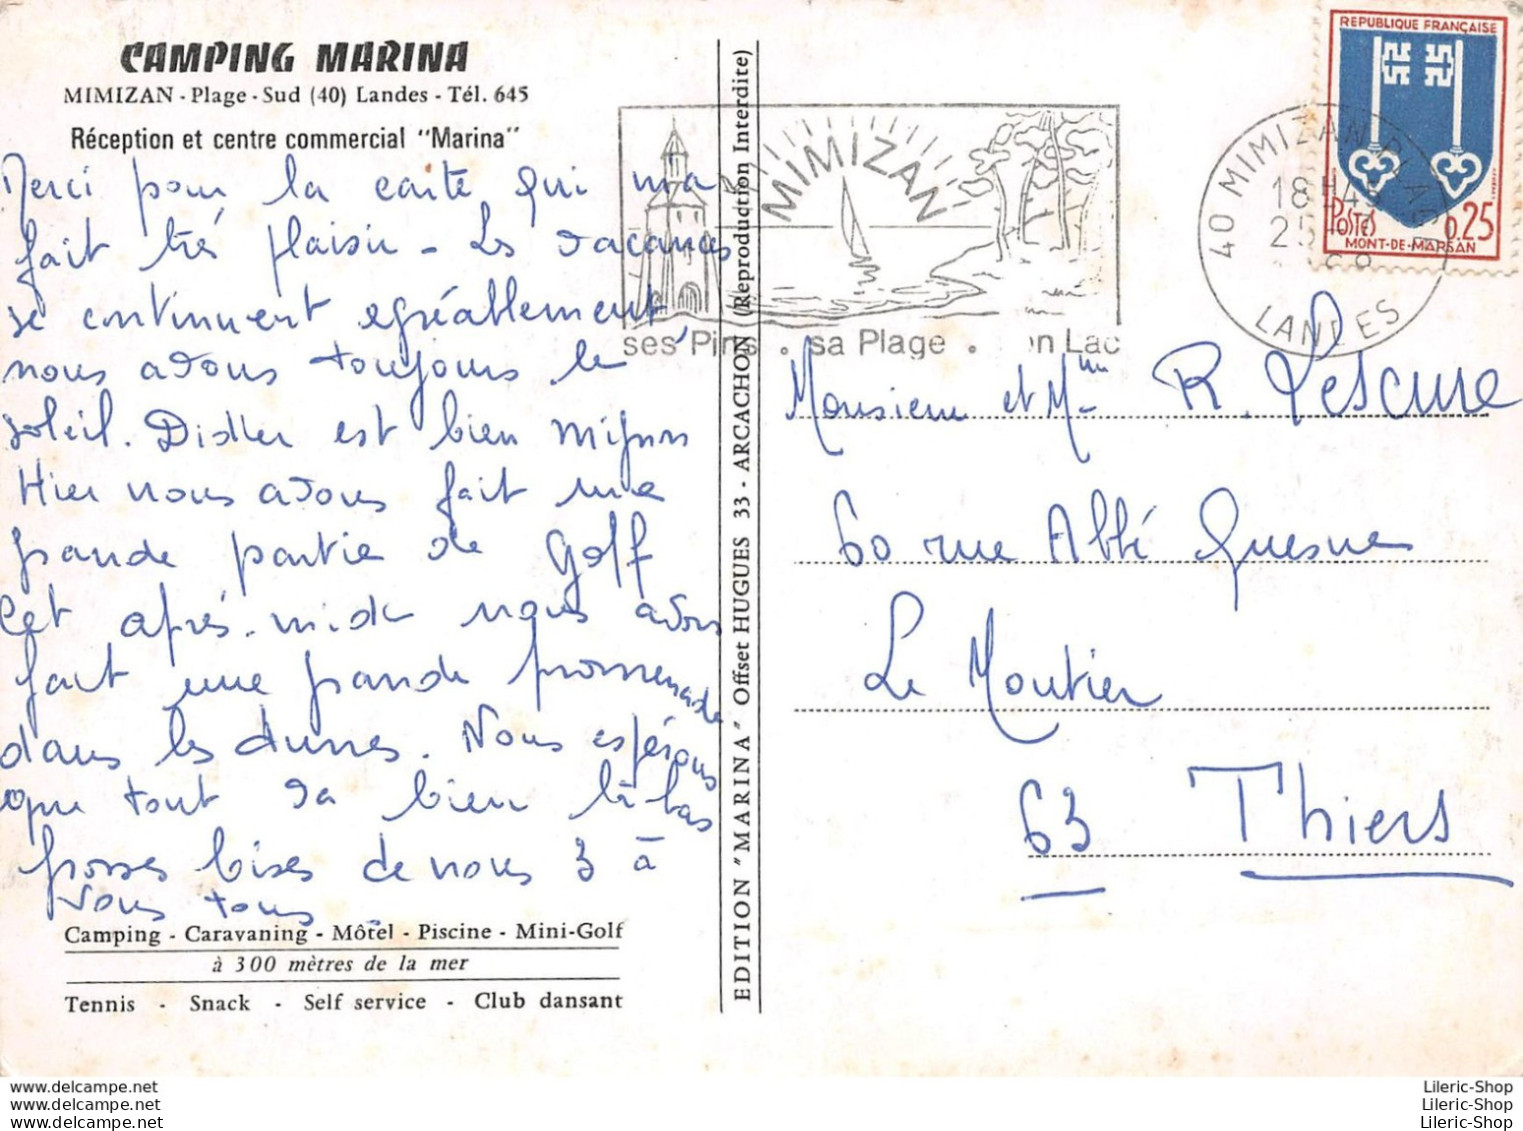 CAMPING MARINA
MIMIZAN - Plage - Sud (40) Landes - Tél. 645
Réception et centre commercial "Marina"
Merci pour la carte qui m'a
fait très plaisir - Les vacances
se continuent agréablement
nous avons toujours le
soleil. Didier est bien mignon
Hier nous avons fait une
grande partie de Golf
Cet après-midi nous avons
fait une grande promenade
dans les dunes. Nous espérons
que tout va bien là-bas
grosses bises de nous 3 à
Vous tous
Camping - Caravaning - Môtel - Piscine - Mini-Golf
à 300 mètres de la mer
Tennis - Snack - Self service - Club dansant
EDITION "MARINA" Offset HUGUES 33 - ARCACHON (Reproduction Interdite)
MIMIZAN
ses Pins . sa Plage . on Lac
40 MIMIZAN PLAGE
18H45
25
68
LANDES
REPUBLIQUE FRANÇAISE
Postes 0,25
MONT-DE-MARSAN
Monsieur et Mme R. Lescure
60 rue Abbé Quesne
Le Moutier
63 Thiers
akpool.co.uk
delcampe.net
www.delcampe.net
Lileric-Shop
Lileric-Shop
Lileric-Shop